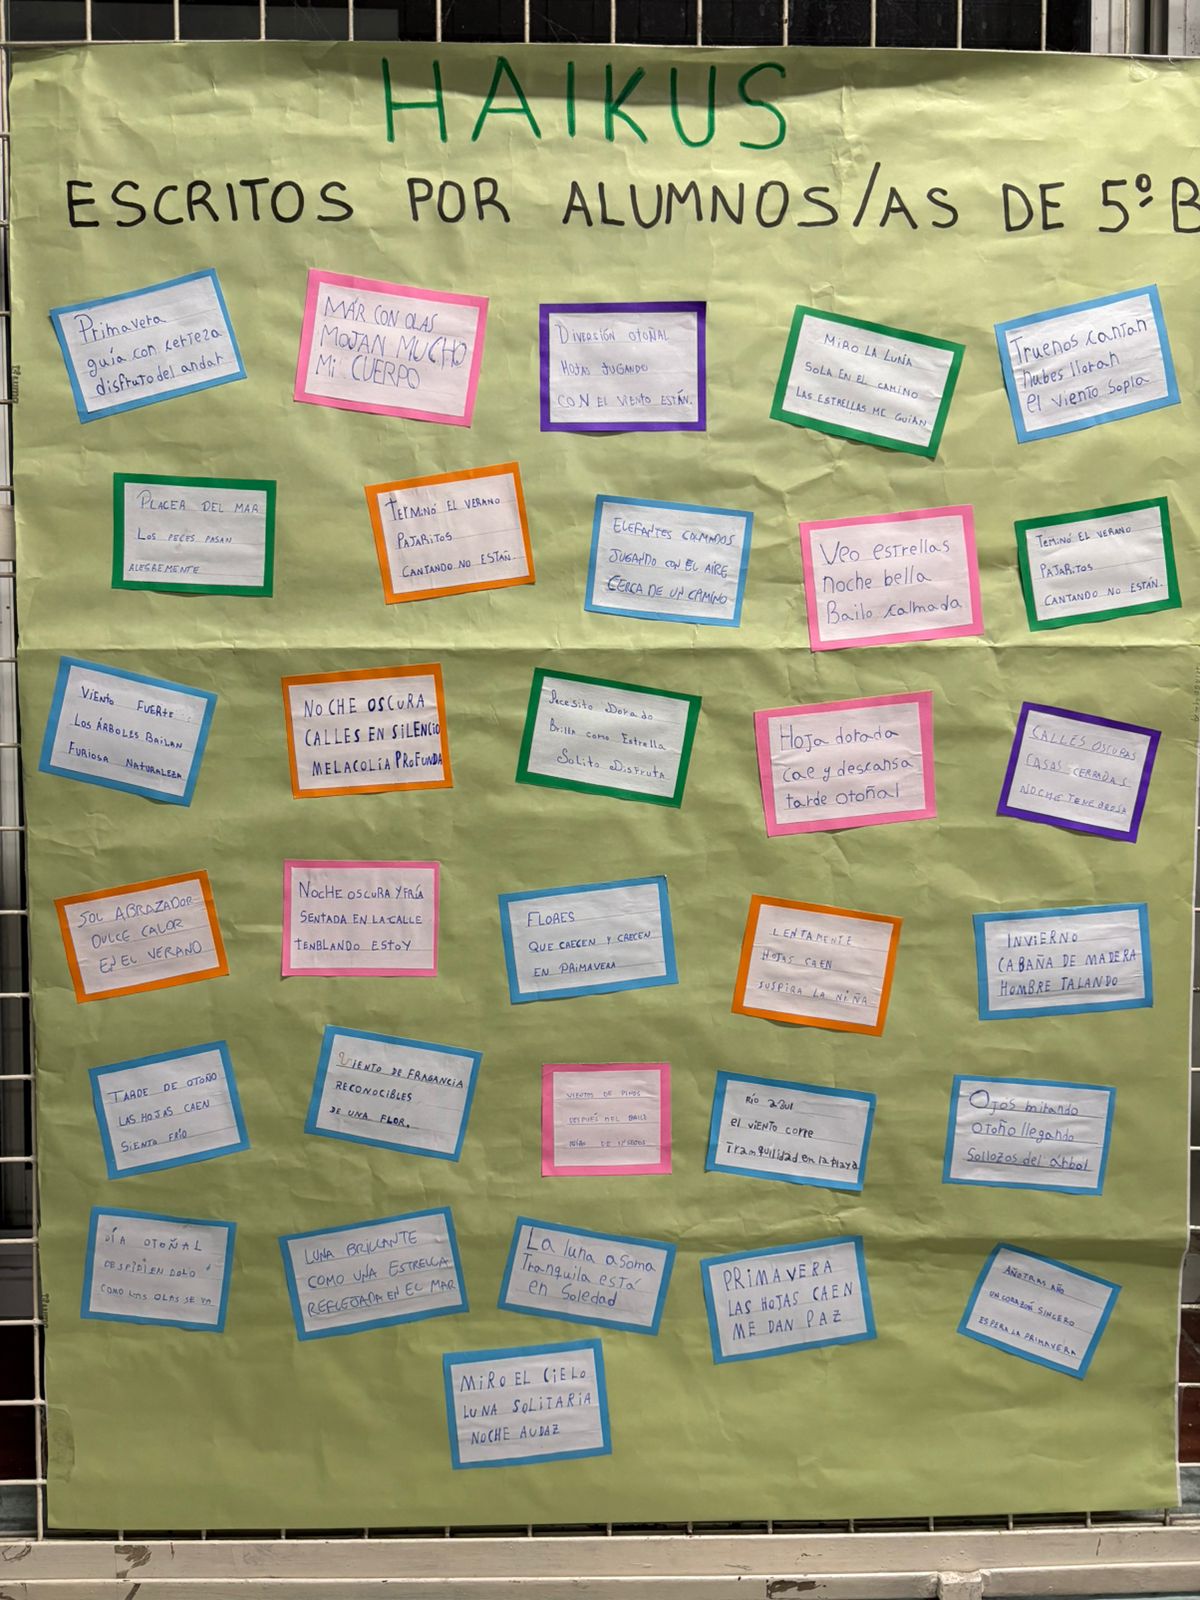 HAIKUS
ESCRITOS POR ALUMNOS/AS DE 5º B
Primavera
guía con certeza
disfruto del andar
MÁR CON OLAS
MOJAN MUCHO
Mi CUERPO
DIVERSIÓN OTOÑAL
HOJAS JUGANDO
CON EL VIENTO ESTÁN.
MIRO LA LUNA
SOLA EN EL CAMINO
LAS ESTRELLAS ME GUÍAN
Truenos cantan
nubes lloran
el viento sopla
PLACER DEL MAR
LOS PECES PASAN
ALEGREMENTE
TERMINÓ EL VERANO
PAJARITOS
CANTANDO NO ESTÁN.
ELEFANTES CALMADOS
JUGANDO CON EL AIRE
CERCA DE UN CAMINO
Veo estrellas
noche bella
Bailo calmada
TEMINÓ EL VERANO
PAJARITOS
CANTANDO NO ESTÁN.
VIENTO FUERTE
LOS ÁRBOLES BAILAN
FURIOSA NATURALEZA
NOCHE OSCURA
CALLES EN SILENCIO
MELACOLÍA PROFUNDA
Pececito Dorado
Brilla como Estrella
Solito Disfruta
Hoja dorada
cae y descansa
tarde otoñal
CALLES OSCURAS
CASAS CERRADAS
NOCHE TENEBROSA
SOL ABRAZADOR
DULCE CALOR
EN EL VERANO
NOCHE OSCURA Y FRÍA
SENTADA EN LA CALLE
TENBLANDO ESTOY
FLORES
QUE CRECEN Y CRECEN
EN PRIMAVERA
LENTAMENTE
HOJAS CAEN
SUSPIRA LA NIÑA
INVIERNO
CABAÑA DE MADERA
HOMBRE TALANDO
TARDE DE OTOÑO
LAS HOJAS CAEN
SIENTO FRÍO
VIENTO DE FRAGANCIA
RECONOCIBLES
DE UNA FLOR.
VIENTOS DE PINOS
DESPUÉS DEL BAILE
DE
RÍO azul
el viento corre
Tranquilidad en la playa
Ojos mirando
Otoño llegando
Sollozos del árbol
DÍA OTOÑAL
DESPIDIENDOLO
COMO LAS OLAS SE VA
LUNA BRILLANTE
COMO UNA ESTRELLA
REFLEJADA EN EL MAR
La luna asoma
Tranquila está
en Soledad
PRIMAVERA
LAS HOJAS CAEN
ME DAN PAZ
AÑO TRAS AÑO
UN CORAZÓN SINCERO
ESPERA LA PRIMAVERA
MIRO EL CIELO
LUNA SOLITARIA
NOCHE AUDAZ